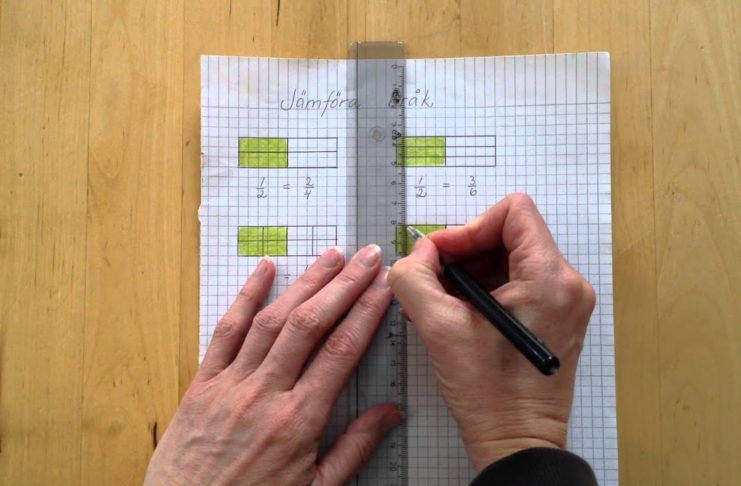 Jämföra bråk
1/2 = 2/4
1/2 = 3/6
=